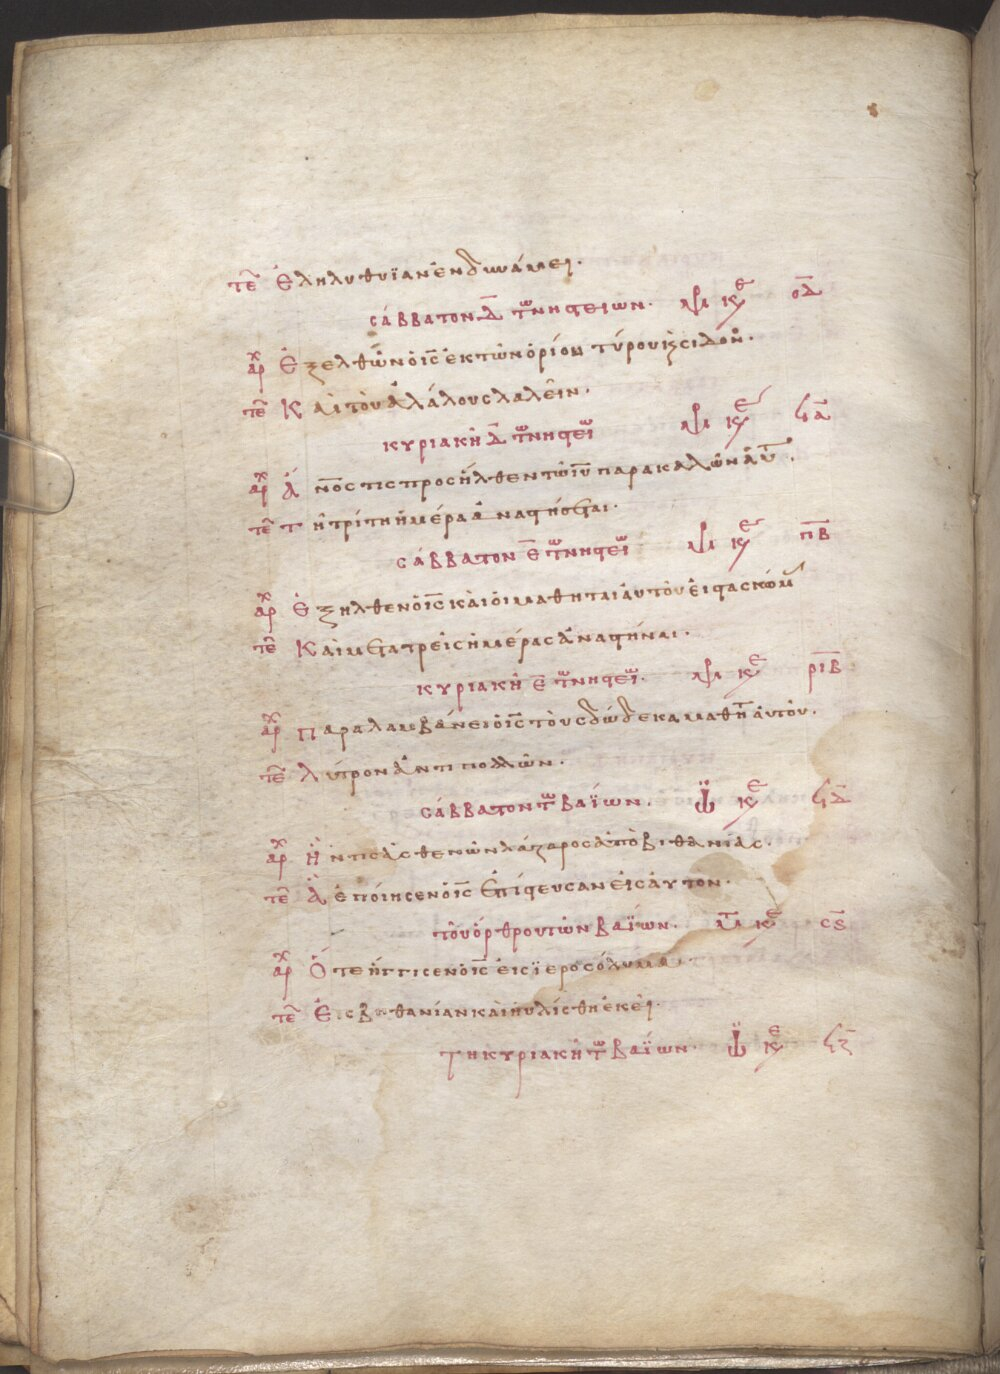 τε Εληλυθυϊαν ἐν δυνάμει·
σάββατον δ τω νηστειων· ψλ κε οδ
αρ Ἐξελθὼν ὁ ις ἐκ τῶν ὁρίων τύρου κς σιδον·
τε Και τοὺ ἀλάλους λαλεῖν·
κυριακὴ δ τω νηστει ψλ κε ϟα
αρ Ἀνος τις προσῆλθεν τῶ ιυ παρακαλῶν αυ·
τε Τῆ τρίτη ἡμέρα ἀναστήσεται·
σάββατον ε τω νηστει ψλ κε πβ
αρ Ἐξῆλθεν ὁ ις καὶ οἱ μαθηται αὐτοῦ εἰς τας κώμ
τε Και μετα τρεῖς ἡμέρας ἀναστῆναι·
κυριακὴ ε τω νηστει· ψλ κε ριβ
αρ Παραλαμβάνει ὁ ις τοὺς δώδεκα μαθη αὐτοῦ·
τε Λύτρον ἀντι πολλῶν·
σάββατον τω βαϊων· ψ κε ϟδ
αρ Ἦν τις ἀσθενῶν λάζαρος ἀπὸ βιθανίας·
τε Ἃ ἐποίησεν ὁ ις ἐπίστευσαν εἰς αὐτον·
τοῦ ὄρθρου τῶν βαϊων· μ κε ςς
αρ Ὅτε ἤγγισεν ὁ ις εἰς ϊεροσόλυμα·
τε Εἰς βηθανίαν καὶ ηυλίσθη ἐκεῖ·
τη κυριακὴ τω βαϊων· ψ κε ϟζ